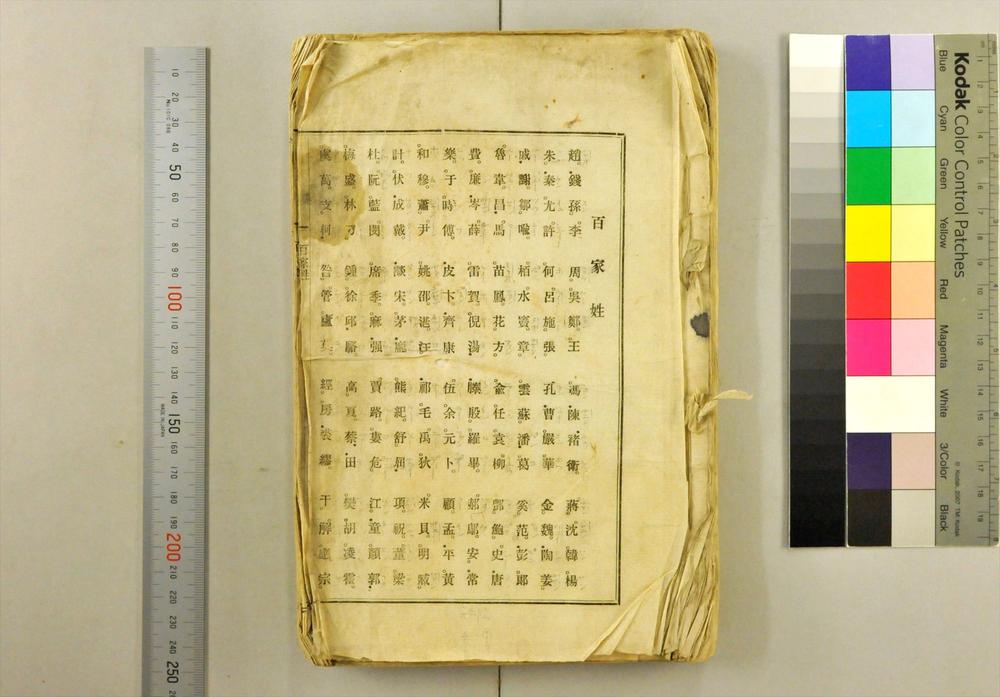 百家姓
趙錢孫李 周吳鄭王 馮陳褚衛 蔣沈韓楊
朱秦尤許 何呂施張 孔曹嚴華 金魏陶姜
戚謝鄒喻 栢水竇章 雲蘇潘葛 奚范彭郎
魯韋昌馬 苗鳳花方 俞任袁柳 酆鮑史唐
費廉岑薛 雷賀倪湯 滕殷羅畢 郝鄔安常
樂于時傅 皮卞齊康 伍余元卜 顧孟平黃
和穆蕭尹 姚邵湛汪 祁毛禹狄 米貝明臧
計伏成戴 談宋茅龐 熊紀舒屈 項祝董梁
杜阮藍閔 席季麻强 賈路婁危 江童顔郭
梅盛林刁 鍾徐邱駱 高夏蔡田 樊胡凌霍
虞萬支柯 昝管盧莫 經房裘繆 干解應宗
百家姓
Kodak Color Control Patches
Blue Cyan Green Yellow Red Magenta White 3/Color Black
© Kodak, 2007 TM: Kodak
10 20 30 40 50 60 70 80 90 100 110 120 130 140 150 160 170 180 190 200 210 220 230 240 250
MADE IN JAPAN